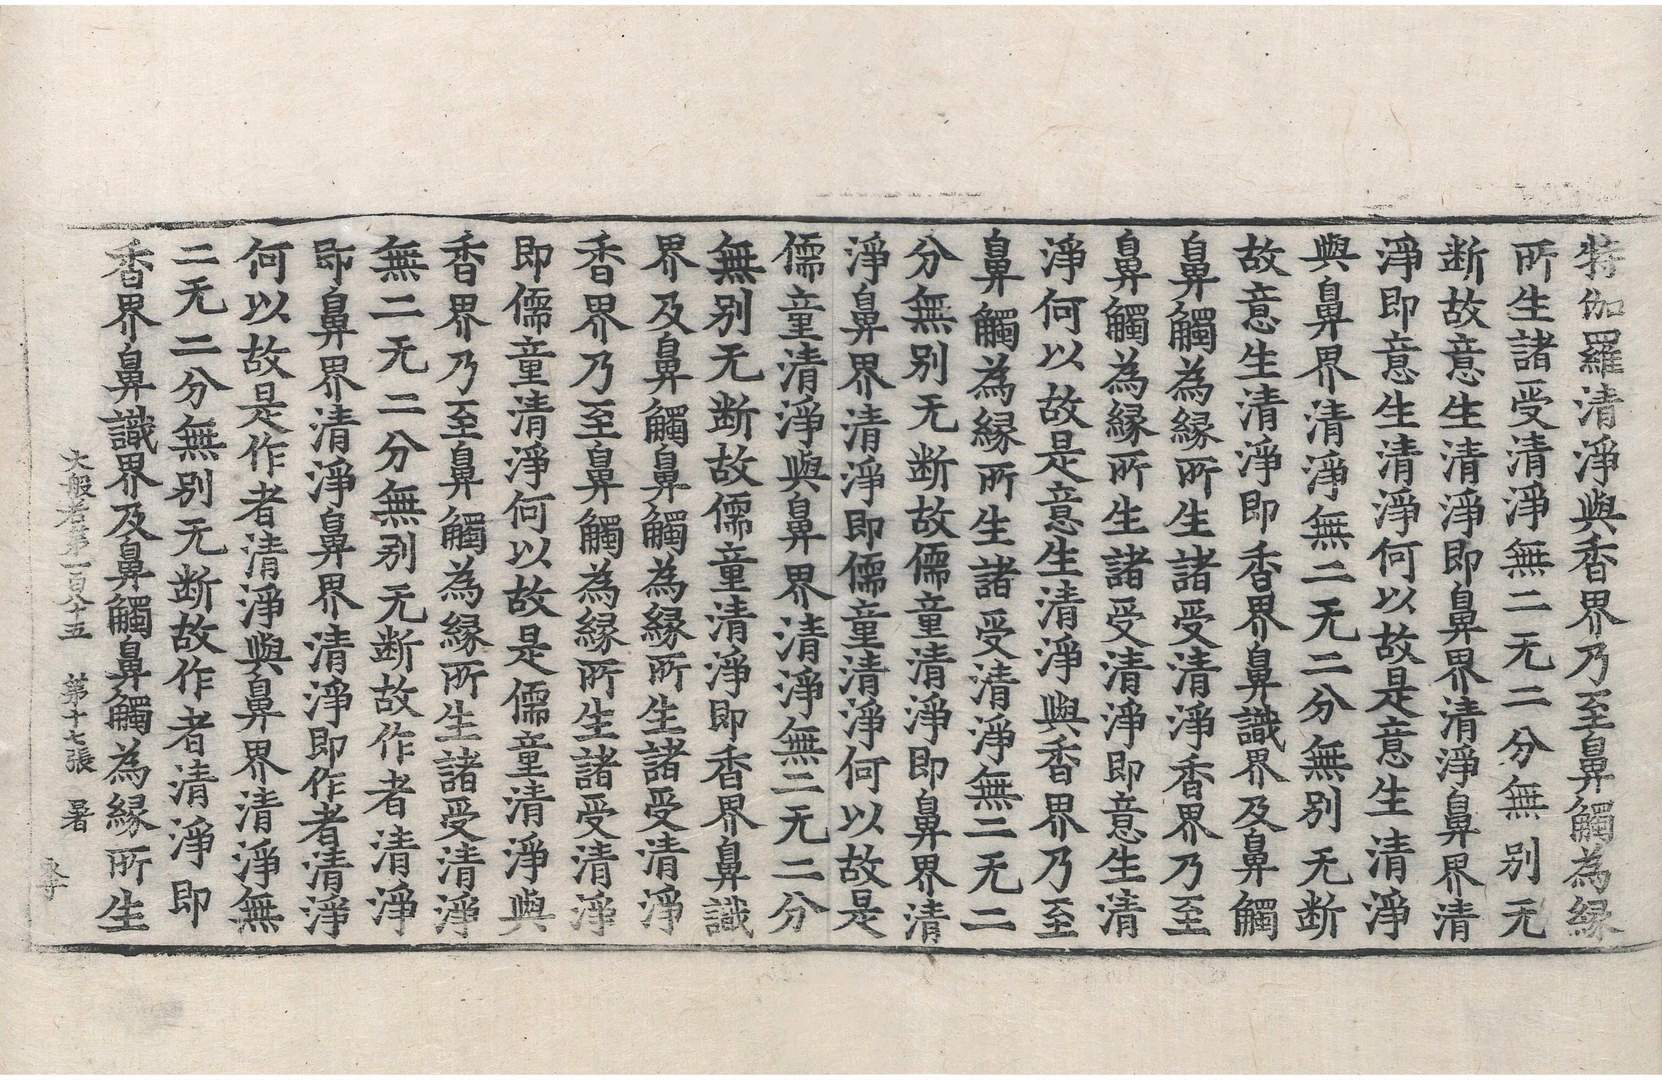 特伽羅清淨與香界乃至鼻觸為緣
所生諸受清淨無二无二分無别无
断故意生清淨即鼻界清淨鼻界清
淨即意生清淨何以故是意生清淨
與鼻界清淨無二无二分無别无断
故意生清淨即香界鼻識界及鼻觸
鼻觸為緣所生諸受清淨香界乃至
鼻觸為緣所生諸受清淨即意生清
淨何以故是意生清淨與香界乃至
鼻觸為緣所生諸受清淨無二无二
分無别无断故儒童清淨即鼻界清
淨鼻界清淨即儒童清淨何以故是
儒童清淨與鼻界清淨無二无二分
無别无断故儒童清淨即香界鼻識
界及鼻觸鼻觸為緣所生諸受清淨
香界乃至鼻觸為緣所生諸受清淨
即儒童清淨何以故是儒童清淨與
香界乃至鼻觸為緣所生諸受清淨
無二无二分無别无断故作者清淨
即鼻界清淨鼻界清淨即作者清淨
何以故是作者清淨與鼻界清淨無
二无二分無别无断故作者清淨即
香界鼻識界及鼻觸鼻觸為緣所生
大般若第一百八十五 第十七張 暑